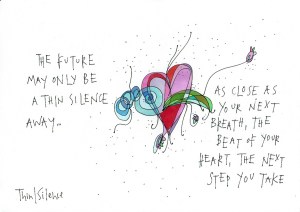 THE FUTURE
MAY ONLY BE
A THIN SILENCE
AWAY..
AS CLOSE AS
YOUR NEXT
BREATH, THE
BEAT OF YOUR
HEART, THE NEXT
STEP YOU TAKE
Thin/Silence